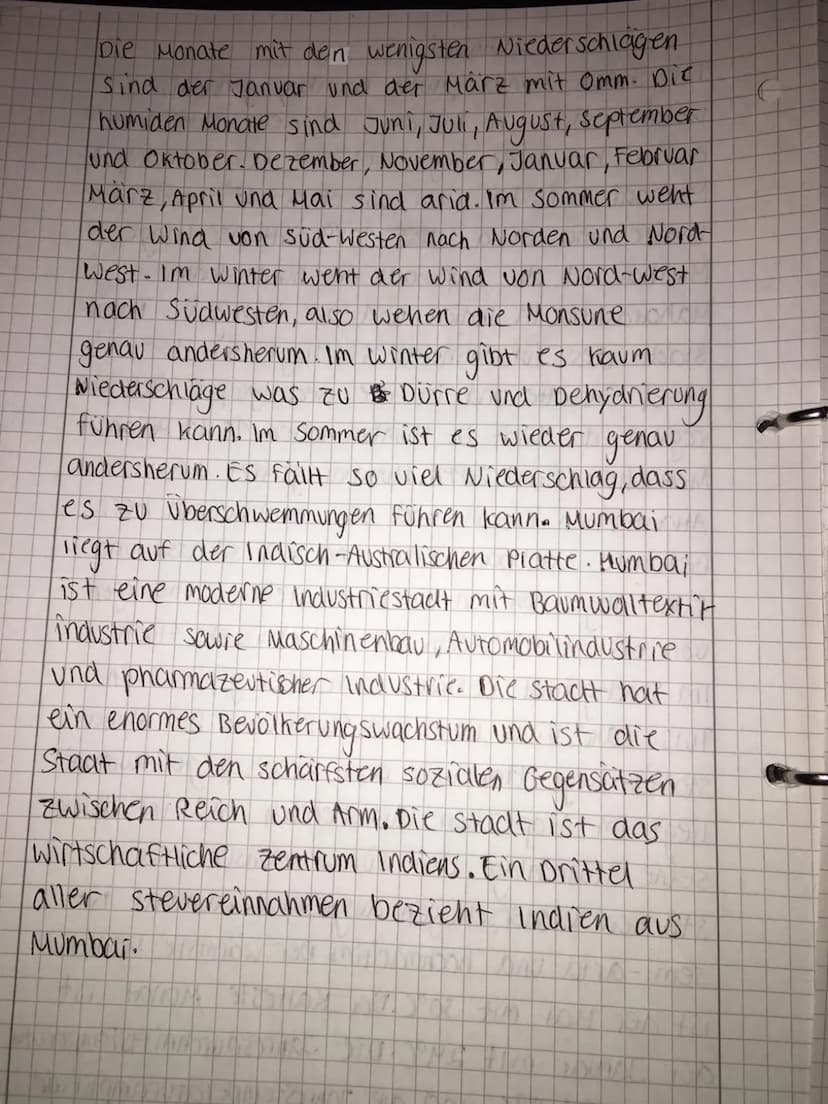 Die Monate mit den wenigsten Niederschlägen
sind der Januar und der März mit 0mm. Die
humiden Monate sind Juni, Juli, August, September
und Oktober. Dezember, November, Januar, Februar
März, April und Mai sind arid. Im Sommer weht
der Wind von Süd-Westen nach Norden und Nord-
West. Im Winter weht der Wind von Nord-West
nach Südwesten, also wehen die Monsune
genau andersherum. Im Winter gibt es kaum
Niederschläge was zu Dürre und Dehydrierung
führen kann. Im Sommer ist es wieder genau
andersherum. Es fällt so viel Niederschlag, dass
es zu Überschwemmungen führen kann. Mumbai
liegt auf der Indisch-Australischen Platte. Mumbai
ist eine moderne Industriestadt mit Baumwolltextil-
industrie sowie Maschinenbau, Automobilindustrie
und pharmazeutischer Industrie. Die Stadt hat
ein enormes Bevölkerungswachstum und ist die
Stadt mit den schärfsten sozialen Gegensätzen
zwischen Reich und Arm. Die Stadt ist das
wirtschaftliche Zentrum Indiens. Ein Drittel
aller Steuereinnahmen bezieht Indien aus
Mumbai.